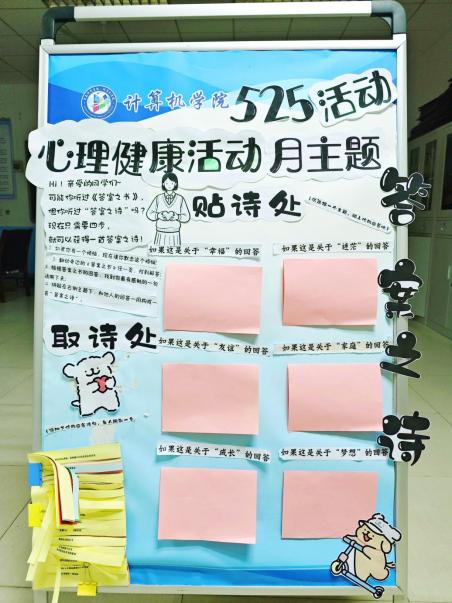 计算机学院 525活动
心理健康活动月主题
Hi！亲爱的同学们~
可能你听过《答案之书》，
但你听过“答案之诗”吗？
现在只需要四步，
就可以获得一首答案之诗！
贴诗处
答案之诗
如果这是关于“幸福”的回答
如果这是关于“迷茫”的回答
取诗处
如果这是关于“友谊”的回答
如果这是关于“家庭”的回答
如果这是关于“成长”的回答
如果这是关于“梦想”的回答